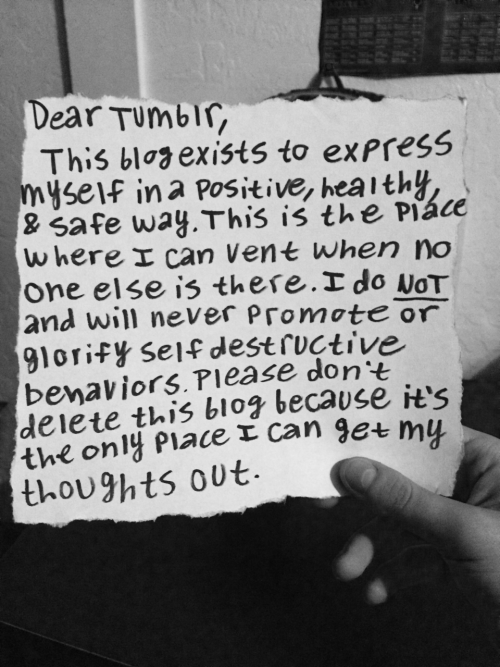 Dear Tumblr,
This blog exists to express
myself in a positive, healthy,
& safe way. This is the place
where I can vent when no
one else is there. I do NOT
and will never promote or
glorify self destructive
behaviors. Please don't
delete this blog because it's
the only place I can get my
thoughts out.